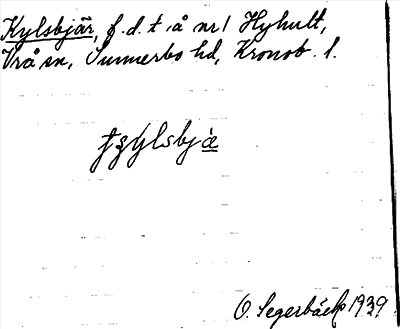 Kylsbjär, f.d. t. å nr 1 Hyhult,
Vrå sn, Sunnerbo hd, Kronob. l.
O. Segerbäck 1939.